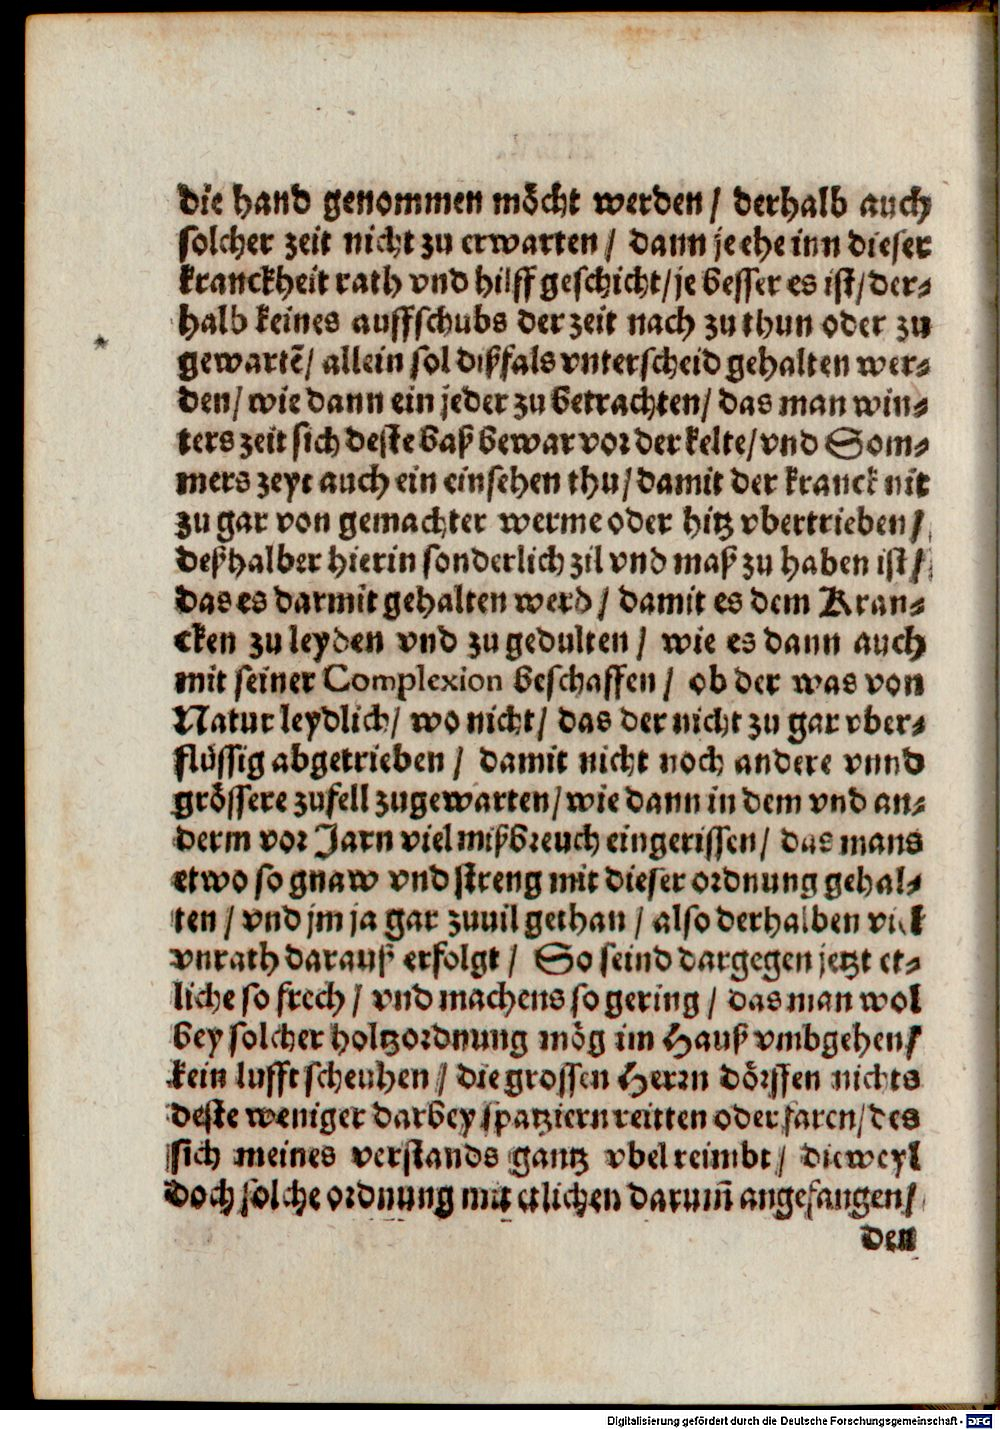 die hand genommen möcht werden / derhalb auch
solcher zeit nicht zu erwarten / dann je ehe inn dieser
kranckheit rath vnd hilff geschicht / je besser es ist / der⸗
halb keines auffschubs der zeit nach zu thun oder zu
gewartē / allein sol dißfals vnterscheid gehalten wer⸗
den / wie dann ein jeder zu betrachten / das man win⸗
ters zeit sich deste baß bewar vor der kelte / vnd Som⸗
mers zeyt auch ein einsehen thu / damit der kranck nit
zu gar von gemachter werme oder hitz vbertrieben /
deßhalber hierin sonderlich zil vnd maß zu haben ist /
das es darmit gehalten werd / damit es dem Kran⸗
cken zu leyden vnd zu gedulten / wie es dann auch
mit seiner Complexion beschaffen / ob der was von
Natur leydlich / wo nicht / das der nicht zu gar vber⸗
flüssig abgetrieben / damit nicht noch andere vnnd
grössere zufell zugewarten / wie dann in dem vnd an⸗
derm vor Jarn viel mißbreuch eingerissen / das mans
etwo so gnaw vnd streng mit dieser ordnung gehal⸗
ten / vnd jm ja gar zuuil gethan / also derhalben viel
vnrath darauß erfolgt / So seind dargegen jetzt et⸗
liche so frech / vnd machens so gering / das man wol
bey solcher holtzordnung mög im Hauß vmbgehen /
kein lufft scheuhen / die grossen Herrn dörffen nichts
deste weniger darbey spatziern reitten oder faren / des
sich meines verstands gantz vbel reimbt / dieweyl
doch solche ordnung mit etlichen darum̃ angefangen /
den
Digitalisierung gefördert durch die Deutsche Forschungsgemeinschaft - DFG